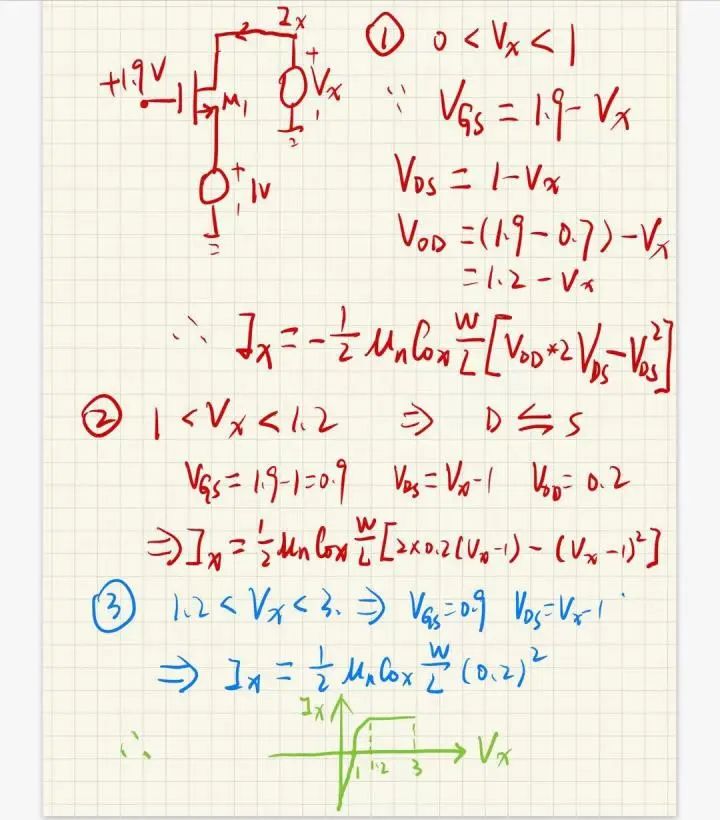 Ix
+1.9V
M1
+
Vx
-
+
1V
-
① 0 < Vx < 1
∵ VGS = 1.9 - Vx
VDS = 1 - Vx
VOD = (1.9 - 0.7) - Vx
= 1.2 - Vx
∴ Ix = -1/2 μn Cox W/L [VOD*2 VDS - VDS²]
② 1 < Vx < 1.2 ⇒ D ⇆ S
VGS = 1.9 - 1 = 0.9 VDS = Vx - 1 VOD = 0.2
⇒ Ix = 1/2 μn Cox W/L [2×0.2(Vx-1) - (Vx-1)²]
③ 1.2 < Vx < 3. ⇒ VGS = 0.9 VDS = Vx - 1
⇒ Ix = 1/2 μn Cox W/L (0.2)²
∴
Ix
1 1.2 3
Vx